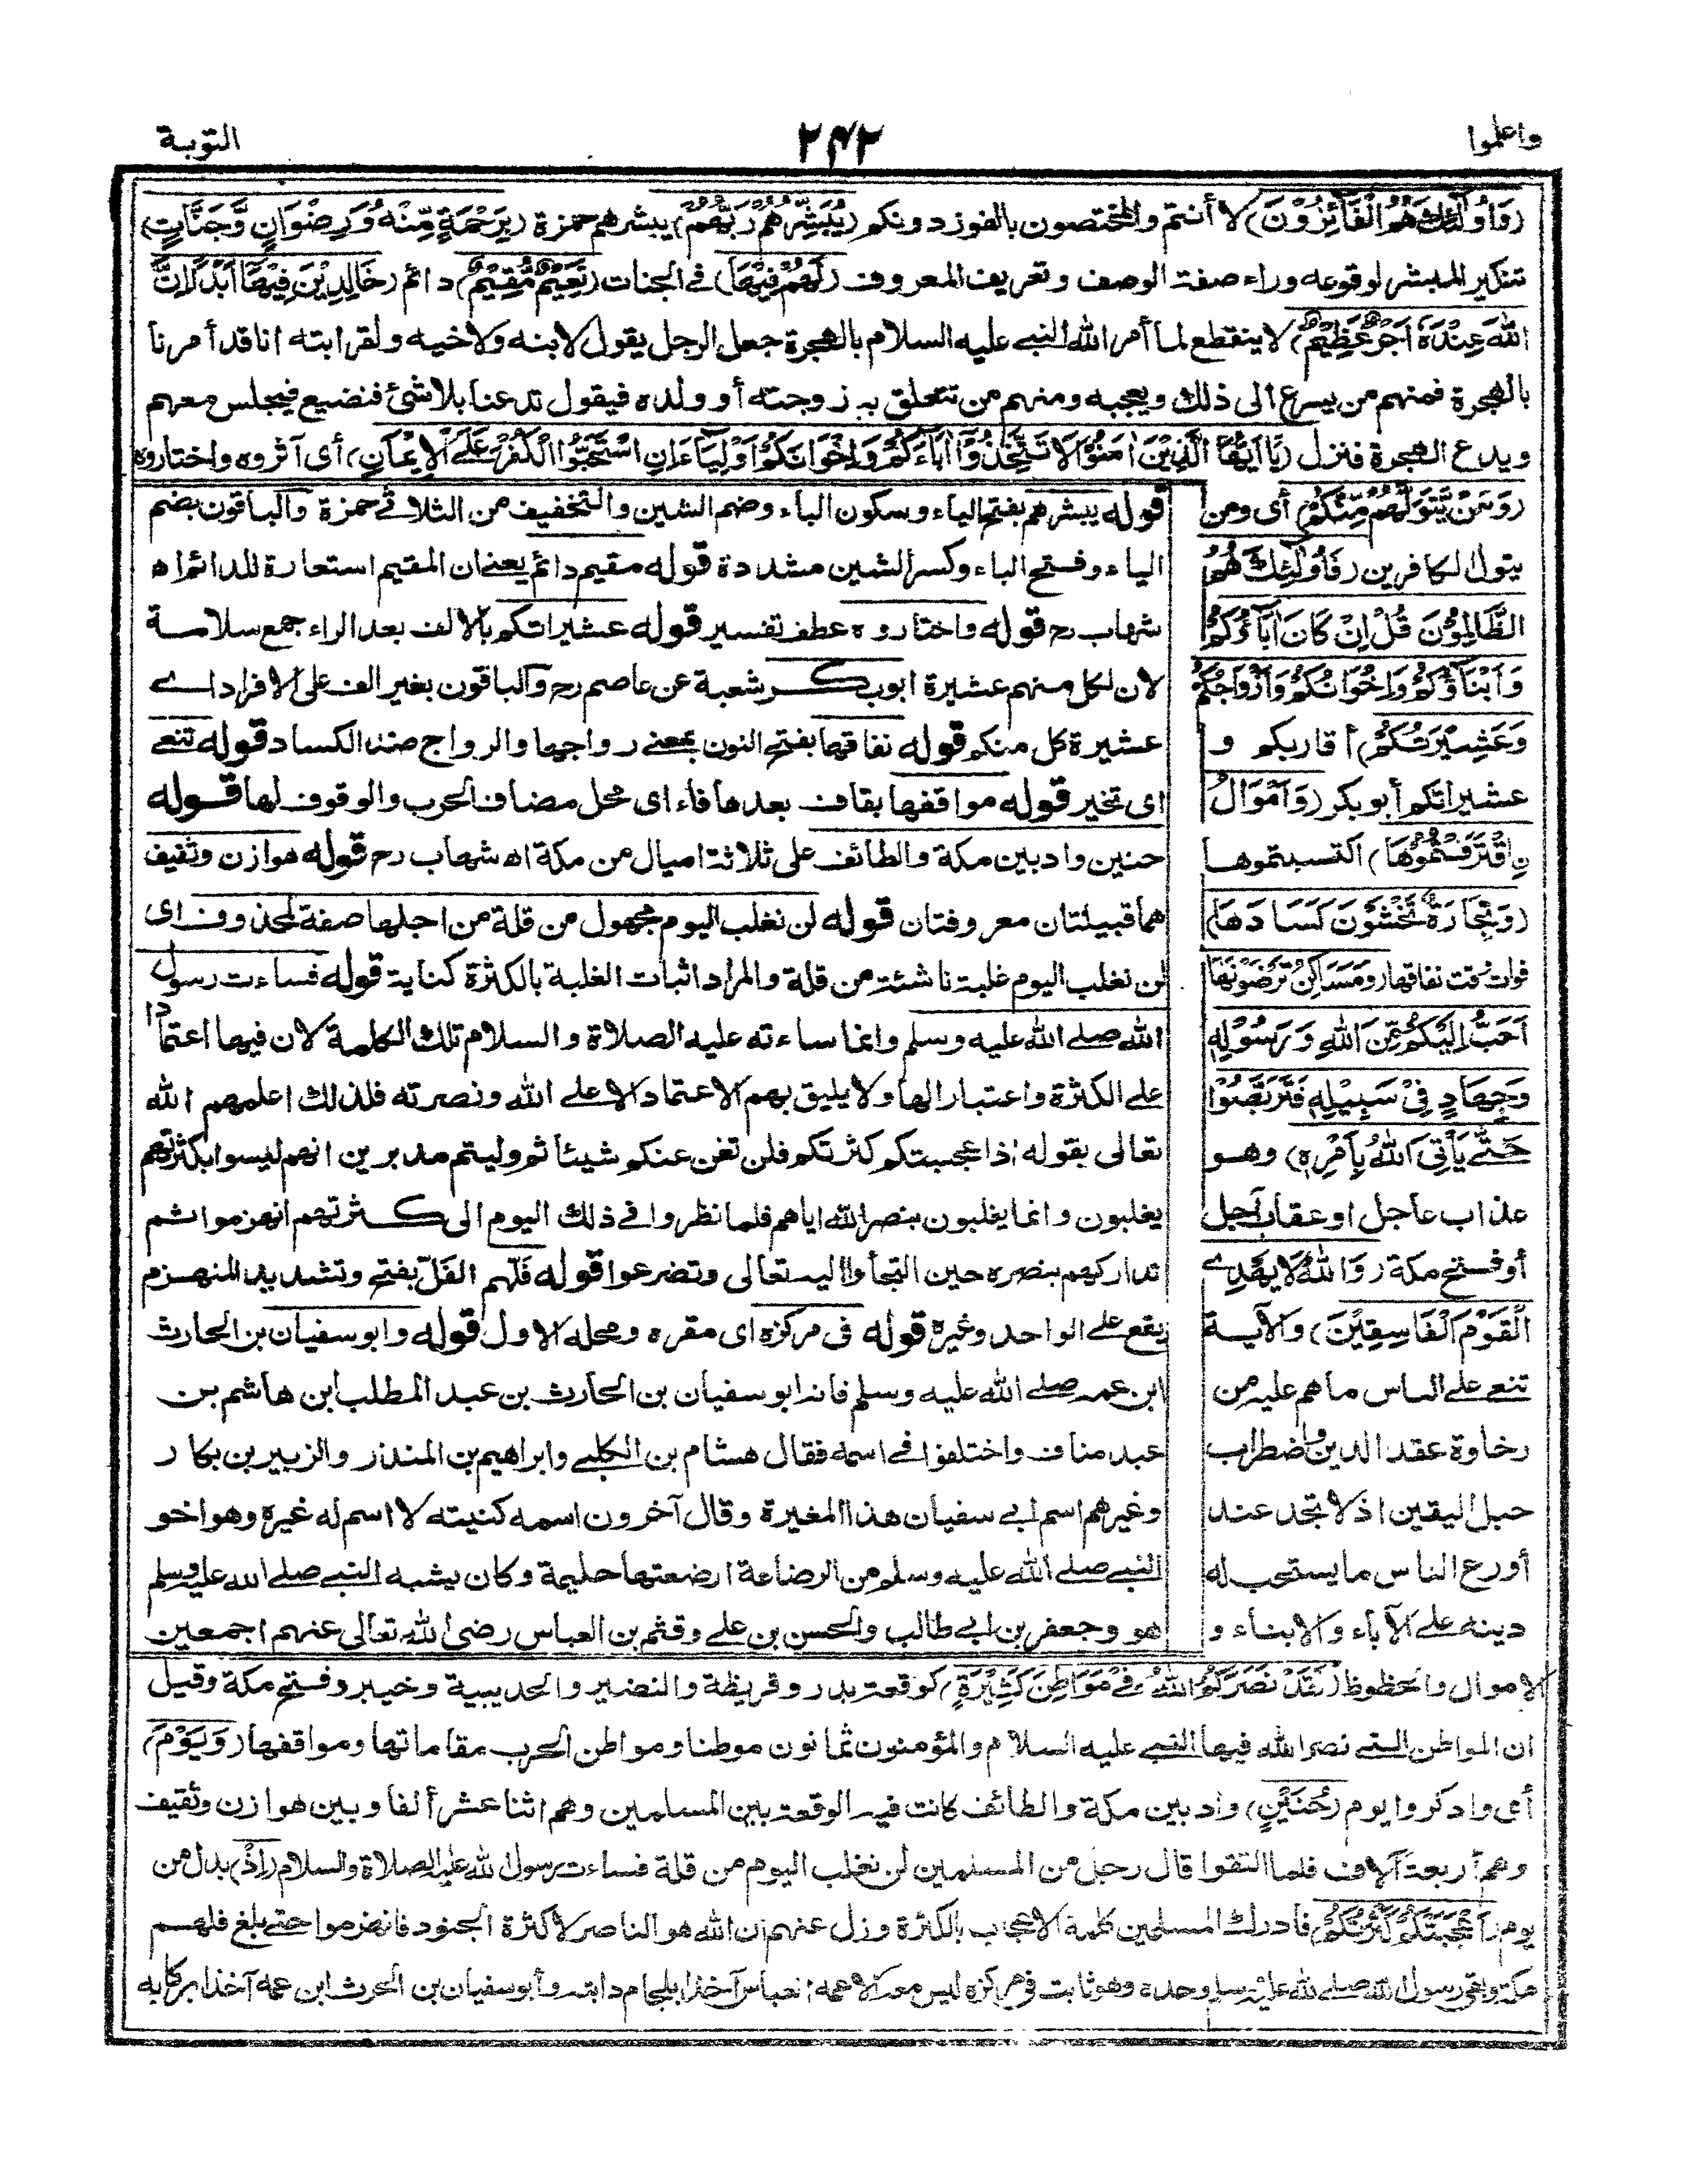 واعلموا
٢٤٢
التوبة
(وَأُولٰٓئِكَ هُمُ الْفَآئِزُوْنَ) لا أنتم والمختصون بالفوز دونكم (يُبَشِّرُهُمْ رَبُّهُمْ) يبشرهم حمزة (بِرَحْمَةٍ مِّنْهُ وَرِضْوَانٍ وَّجَنَّاتٍ)
تنكير المبشر لوقوعه وراء صفة الوصف وتعريف المعروف (لَهُمْ فِيْهَا) في الجنات (نَعِيْمٌ مُّقِيْمٌ) دائم (خَالِدِيْنَ فِيْهَا أَبَدًا إِنَّ
اللّٰهَ عِنْدَهٗ أَجْرٌ عَظِيْمٌ) لا ينقطع لما أمر الله النبي عليه السلام بالهجرة جعل الرجل يقول لابنه ولاخيه ولقرابته انا قد أمرنا
بالهجرة فمنهم من يسرع الى ذلك ويعجبه ومنهم من تتعلق به زوجته أو ولده فيقول تدعنا بلا شئ فنضيع فيجلس معهم
ويدع الهجرة فنزل (يَا أَيُّهَا الَّذِيْنَ اٰمَنُوْا لَا تَتَّخِذُوْا اٰبَآءَكُمْ وَإِخْوَانَكُمْ أَوْلِيَآءَ إِنِ اسْتَحَبُّوا الْكُفْرَ عَلَى الْإِيْمَانِ) أى آثروه واختاروه
(وَمَنْ يَّتَوَلَّهُمْ مِّنْكُمْ) أى ومن
يتول الكافرين (فَأُولٰٓئِكَ هُمُ
الظَّالِمُوْنَ قُلْ إِنْ كَانَ اٰبَآؤُكُمْ
وَأَبْنَآؤُكُمْ وَإِخْوَانُكُمْ وَأَزْوَاجُكُمْ
وَعَشِيْرَتُكُمْ) أقاربكم و
عشيراتكم أبو بكر (وَأَمْوَالُ
نِ اقْتَرَفْتُمُوْهَا) اكتسبتموها
(وَتِجَارَةٌ تَخْشَوْنَ كَسَادَهَا)
فوات وقت نفاقها (وَمَسَاكِنُ تَرْضَوْنَهَا
أَحَبَّ إِلَيْكُمْ مِّنَ اللّٰهِ وَرَسُوْلِهٖ
وَجِهَادٍ فِيْ سَبِيْلِهٖ فَتَرَبَّصُوْا
حَتّٰى يَأْتِيَ اللّٰهُ بِأَمْرِهٖ) وهو
عذاب عاجل او عقاب آجل
أو فتح مكة (وَاللّٰهُ لَا يَهْدِي
الْقَوْمَ الْفَاسِقِيْنَ) والآية
تنعى على الناس ما هم عليه من
رخاوة عقد الدين واضطراب
حبل اليقين اذ لا تجد عند
أورع الناس ما يستحب له
دينه على الآباء والابناء و
قوله يبشرهم بفتح الياء وسكون الباء وضم الشين والتخفيف من الثلاثي حمزة والباقون بضم
الياء وفتح الباء وكسر الشين مشددة قوله مقيم دائم يعني ان المقيم استعارة للدائم اه
شهاب رح قوله واختاروه عطف تفسير قوله عشيراتكم بالالف بعد الراء جمع سلامة
لان لكل منهم عشيرة ابوبكر شعبة عن عاصم رح والباقون بغير الف على الافراد اے
عشيرة كل منكم قوله نفاقها بفتح النون بمعنى رواجها والرواج ضد الكساد قوله تنعى
اى تخبر قوله مواقفها بقاف بعدها فاء اى محل مضاف الحرب والوقوف لها قوله
حنين واد بين مكة والطائف على ثلاثة اميال من مكة اه شهاب رح قوله هوازن وثقيف
هما قبيلتان معروفتان قوله لن نغلب اليوم مجهول من قلة من اجلها صفة لمحذوف اى
لن نغلب اليوم غلبة ناشئة من قلة والمراد اثبات الغلبة بالكثرة كناية قوله فساءت رسول
الله صلى الله عليه وسلم وانما ساءته عليه الصلاة والسلام تلك الكلمة لان فيها اعتمادا
على الكثرة واعتبارا لها ولا يليق بهم الاعتماد الا على الله ونصرته فلذلك اعلمهم الله
تعالى بقوله اذ اعجبتكم كثرتكم فلن تغن عنكم شيئا ثم وليتم مدبرين انهم ليسوا بكثرتهم
يغلبون وانما يغلبون بنصر الله اياهم فلما نظروا في ذلك اليوم الى كثرتهم انهزموا ثم
تداركهم بنصره حين التجأوا اليه تعالى وتضرعوا قوله فلّهم الفلّ بفتح وتشديد المنهزم
يقع على الواحد وغيره قوله فى مركزه اى مقره ومحله الاول قوله وابو سفيان بن الحارث
ابن عمه صلى الله عليه وسلم فانه ابو سفيان بن الحارث بن عبد المطلب ابن هاشم بن
عبد مناف واختلفوا في اسمه فقال هشام بن الكلبي وابراهيم بن المنذر والزبير بن بكار
وغيرهم اسم ابي سفيان هذا المغيرة وقال آخرون اسمه كنيته لا اسم له غيره وهو اخو
النبي صلى الله عليه وسلم من الرضاعة ارضعتها حليمة وكان يشبه النبي صلى الله عليه وسلم
هو وجعفر بن ابي طالب والحسن بن علي وقثم بن العباس رضي الله تعالى عنهم اجمعين
الاموال والحظوظ (لَقَدْ نَصَرَكُمُ اللّٰهُ فِيْ مَوَاطِنَ كَثِيْرَةٍ) كوقعة بدر وقريظة والنضير والحديبية وخيبر وفتح مكة وقيل
ان المواطن التي نصر الله فيها النبي عليه السلام والمؤمنون ثمانون موطنا ومواطن الحرب مقاماتها ومواقفها (وَيَوْمَ)
أى واذكروا يوم (حُنَيْنٍ) واد بين مكة والطائف كانت فيه الوقعة بين المسلمين وهم اثنا عشر ألفا وبين هوازن وثقيف
وهم أربعة آلاف فلما التقوا قال رجل من المسلمين لن نغلب اليوم من قلة فساءت رسول الله عليه الصلاة والسلام (إِذْ) بدل من
يوم (أَعْجَبَتْكُمْ كَثْرَتُكُمْ) فادرك المسلمين كلمة الاعجاب بالكثرة وزل عنهم ان الله هو الناصر لا كثرة الجنود فانهزموا حتى بلغ فلهم
مكة وبقي رسول الله صلى الله عليه وسلم وحده وهو ثابت في مركزه ليس معه الا عمه العباس آخذا بلجام دابته وأبو سفيان بن الحرث ابن عمه آخذا بركابه